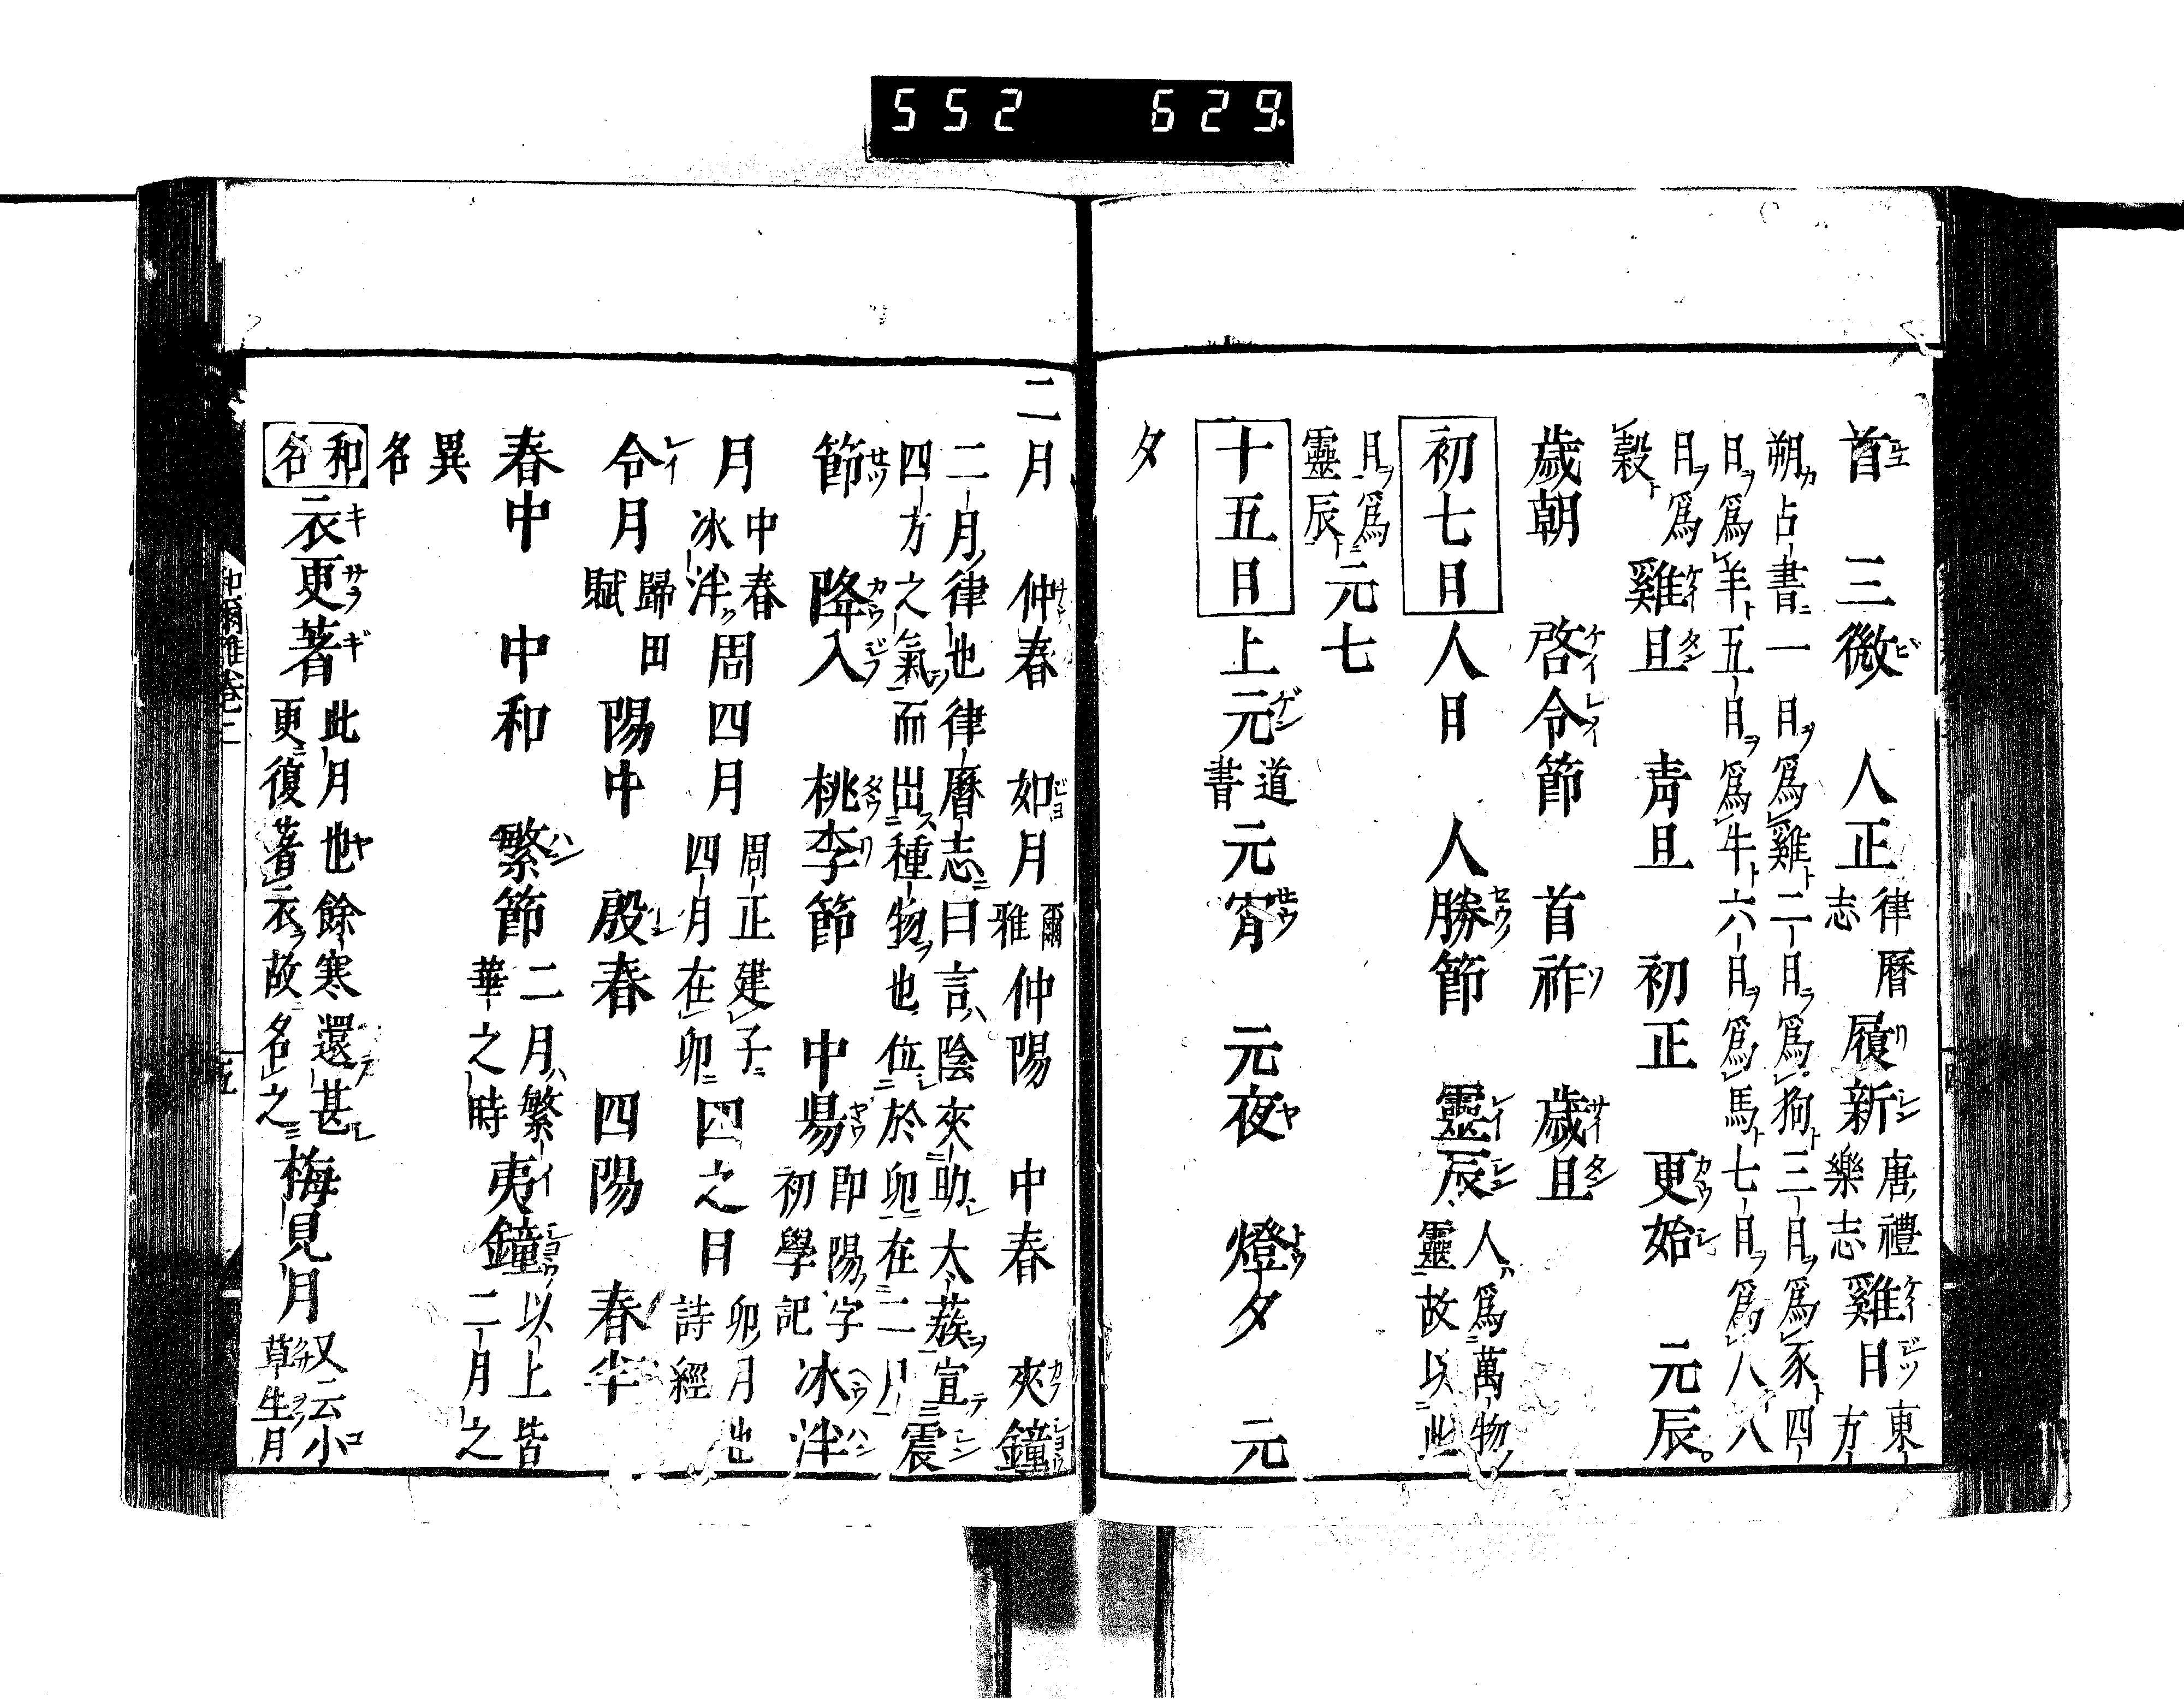 552 629.
首 三微 人正 律曆志 履新 唐禮樂志 雞日 東方
朔占書一日爲雞二日爲狗三日爲豕四
日爲羊五日爲牛六日爲馬七日爲人八
日爲穀 雞旦 青旦 初正 更始 元辰
歲朝 啓令節 首祚 歲旦
初七日 人日 人勝節 靈辰 人爲萬物ノ靈故以此
日爲靈辰 元七
十五日 上元 道書 元宵 元夜 燈夕 元
夕
二月 仲春 如月 爾雅 仲陽 中春 夾鐘
二月律也律曆志曰言陰夾助太蔟宣
四方之氣而出種物也位於卯在二月 震
節 降入 桃李節 中場 即陽字初學記 冰泮
月 中春冰泮 周四月 周正建子四月在卯 四之日 卯月也詩經
令月 歸田賦 陽中 殷春 四陽 春半
春中 中和 繁節 二月繁華之時 夷鐘 以上皆二月之
異
名
和名 衣更著 此月也餘寒還甚更復著衣故名之 梅見月 又云小草生月
和爾雅卷二 五
四